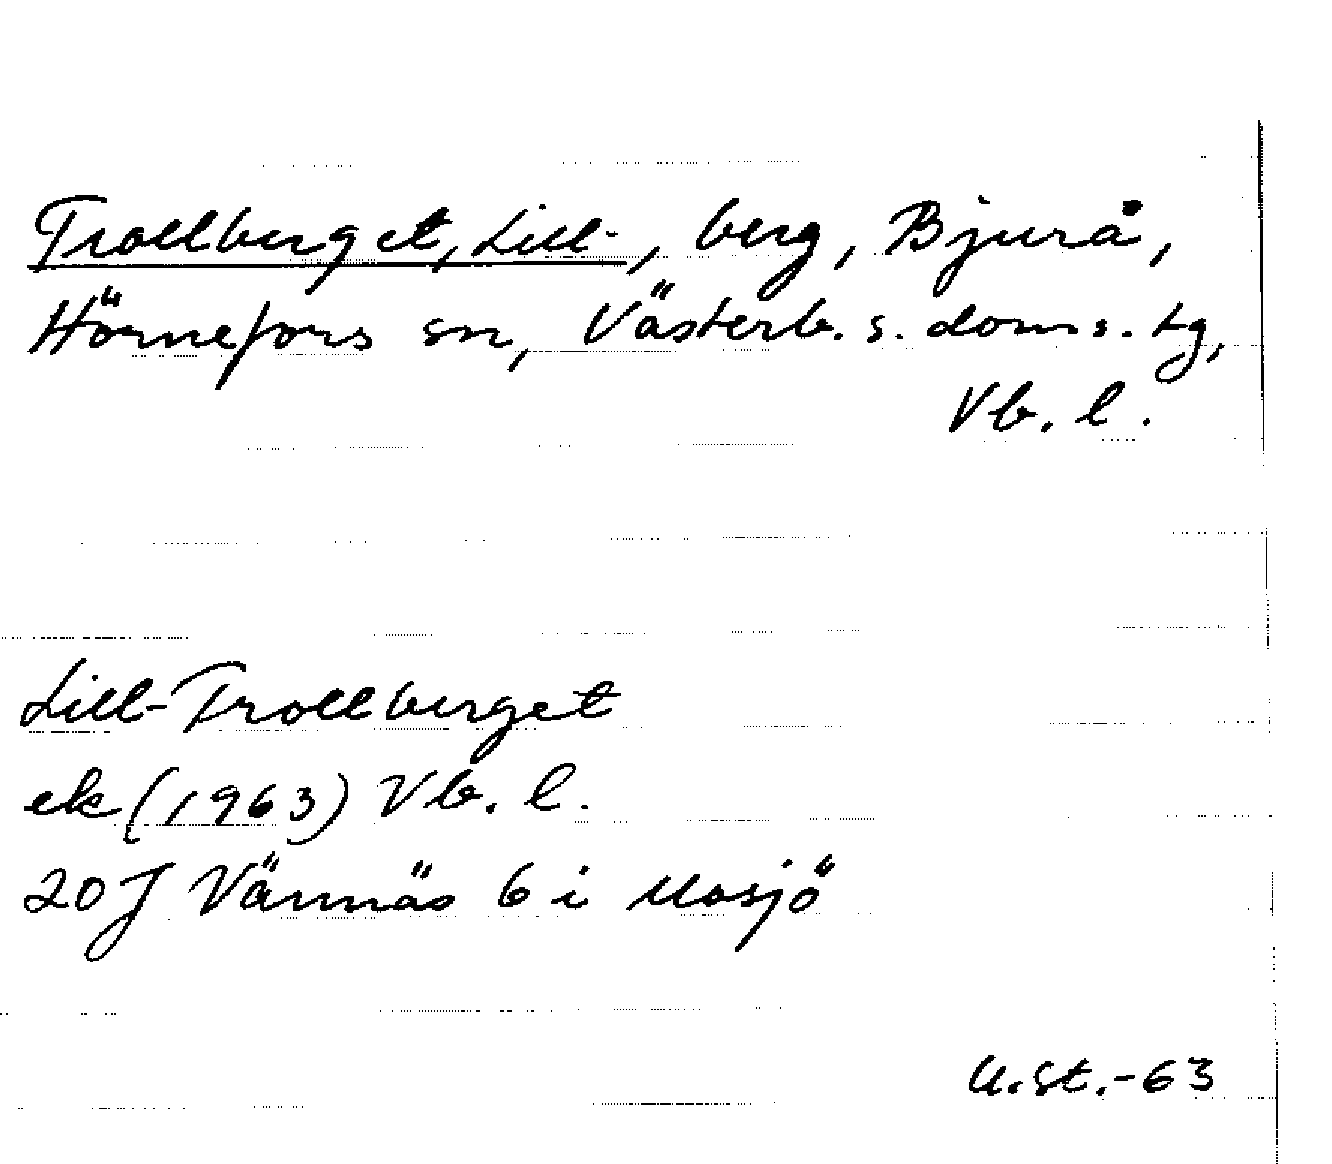 Trollberget, Lill-, berg, Bjurå,
Hörnefors sn, Västerb. s. doms. tg,
Vb. l.
Lill-Trollberget
ek (1963) Vb. l.
20 J Vännäs 6 i Mosjö
U.St.-63